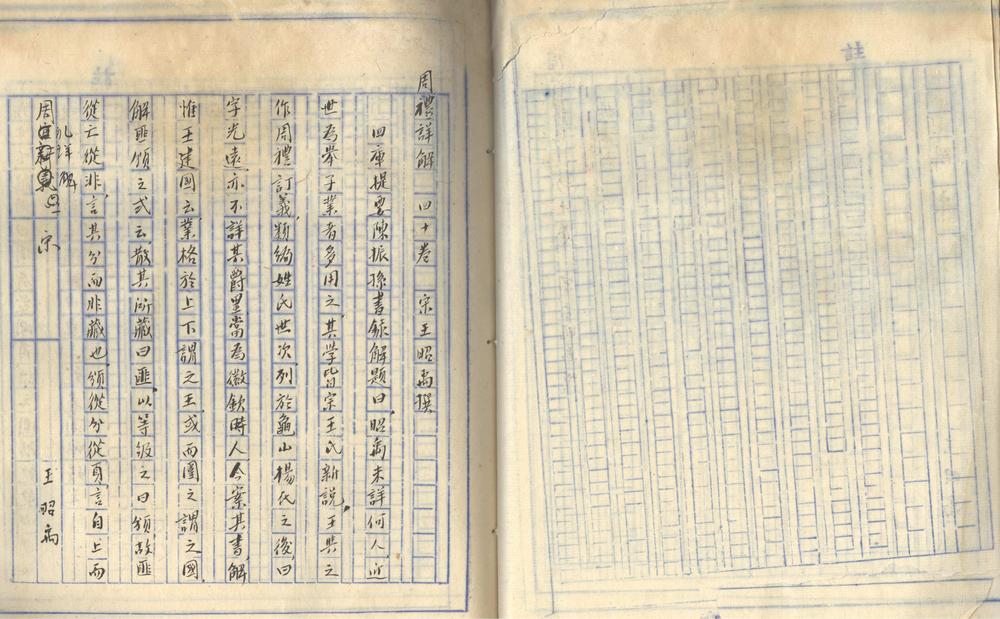 周禮詳解 四十卷 宋王昭禹撰
四庫提要陳振孫書錄解題曰，昭禹未詳何人，近
世為舉子業者多用之，其學皆宗王氏新說，王與之
作周禮訂義，類編姓氏世次，列於龜山楊氏之後，曰
字光遠，亦不詳其爵里，當為徽欽時人，今案其書解
惟王建國云，業格於上下謂之王，或而圍之謂之國，
解匪頒之式云，散其所藏曰匪，以等級之曰頒，故匪
從匚從非，言其分而非藏也，頒從分從頁，言自上而
周 宋 王昭禹